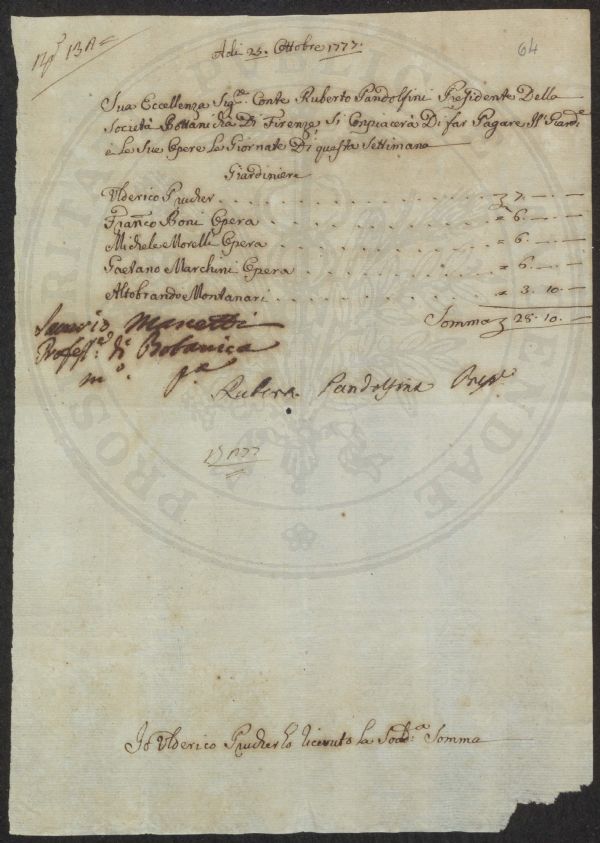 Adi 25. Ottobre 1777.
64
Sua Eccellenza Sig.re Conte Ruberto Pandolfini Presidente Della
Società Bottanicha Di Firenze Si Conpiacerà Di far Pagare Il Giardi.e
e Le Sue Opere Le Giornate Di questa Settimana
Giardiniere
Ulderico Prucher . . . . . . 7. — —
Franco Boni Opera . . . . . . = 6. — —
Michele Morelli Opera . . . . . . = 6. — —
Gaetano Marchini Opera . . . . . . = 6. — —
Altobrando Montanari . . . . . . = 3. 10. —
Somma 28. 10. —
Saverio Manetti
Profess.e di Botanica
m.o p.a
Pandolfini
Io Ulderico Prucher ho riceuto la Sod.a Somma
PROSPERITATI AUGENDAE